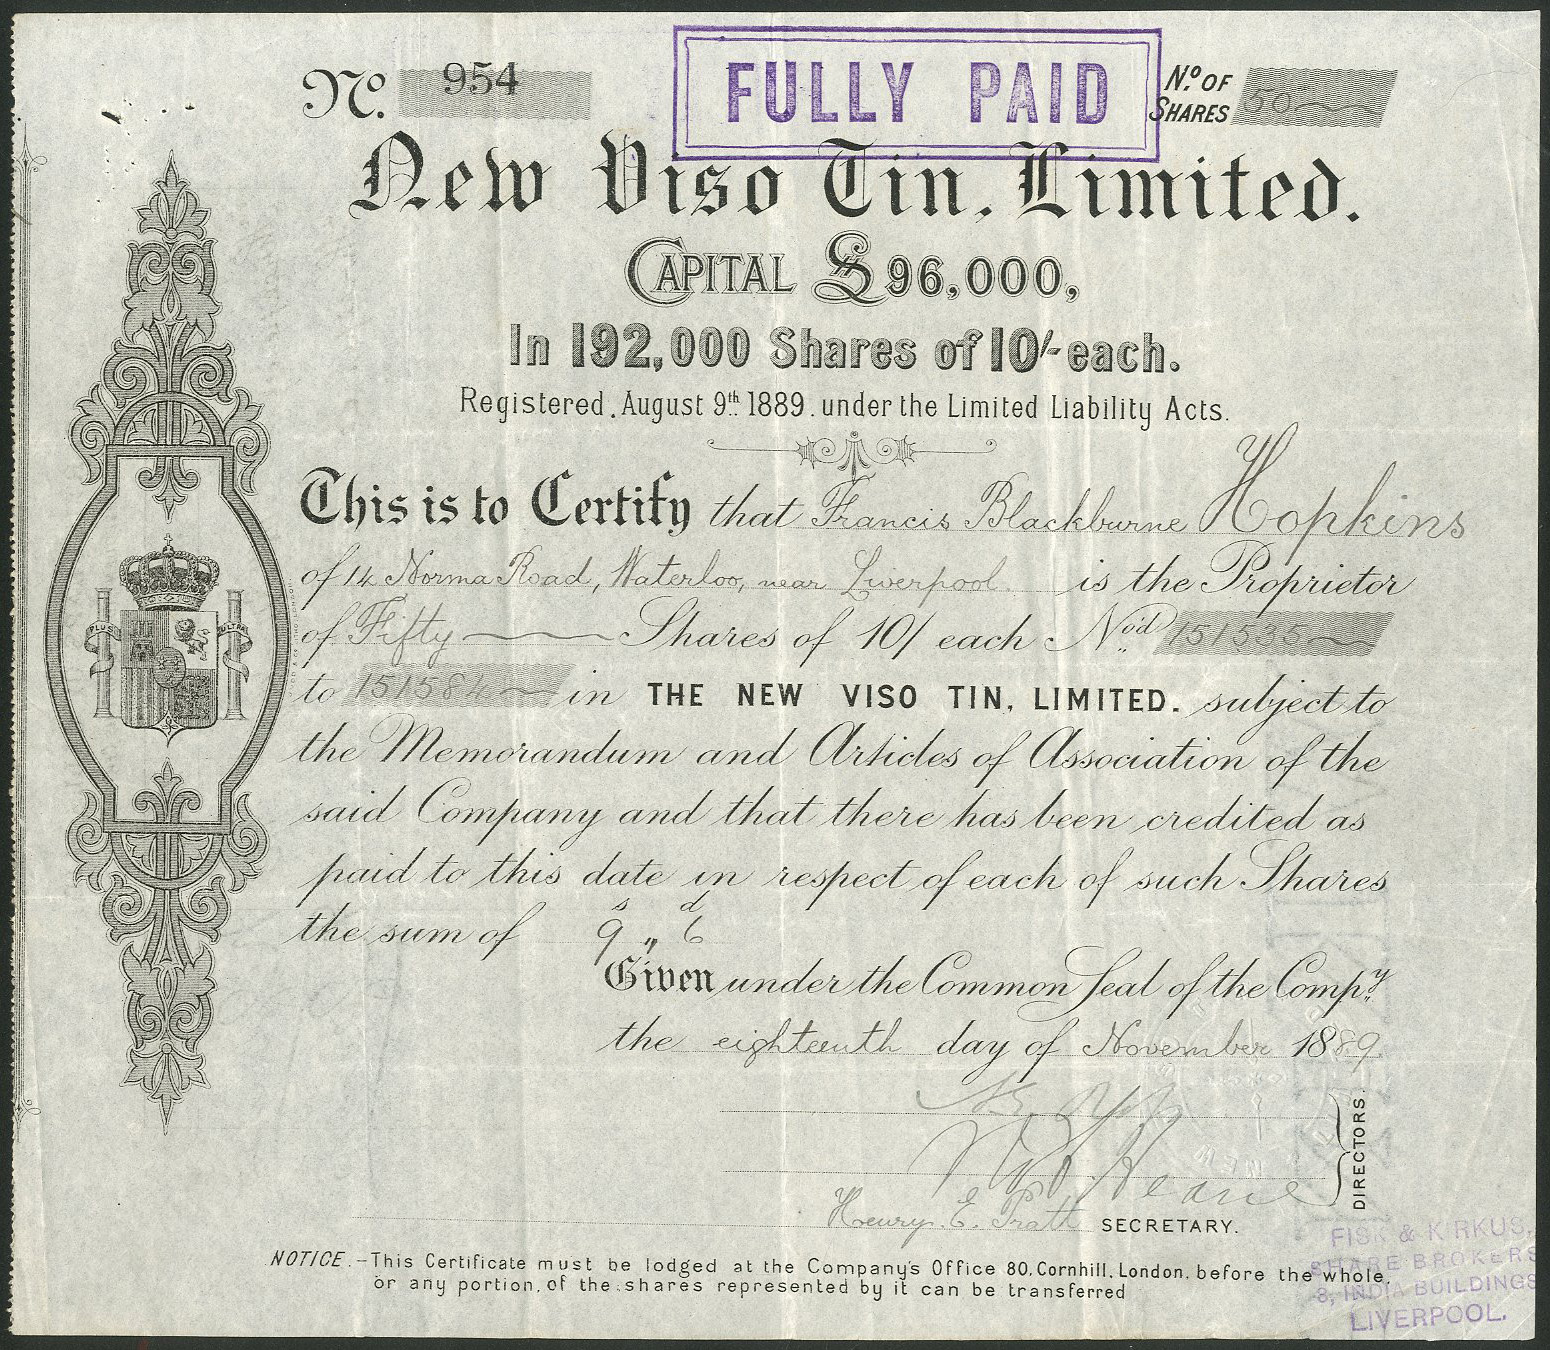 FULLY PAID
No. 954
No. OF SHARES 50
New Viso Tin, Limited.
CAPITAL £96,000,
In 192,000 Shares of 10/- each.
Registered, August 9th 1889, under the Limited Liability Acts.
This is to Certify that Francis Blackburne Hopkins
of 14 Norma Road, Waterloo, near Liverpool is the Proprietor
of Fifty Shares of 10/ each No'd 151535
to 151584 in THE NEW VISO TIN, LIMITED. subject to
the Memorandum and Articles of Association of the
said Company and that there has been credited as
paid to this date in respect of each of such Shares
the sum of 9s „ 6d
Given under the Common Seal of the Compy.
the eighteenth day of November 1889
DIRECTORS.
Henry. E. Pratt SECRETARY.
NOTICE.-This Certificate must be lodged at the Company's Office 80, Cornhill, London, before the whole,
or any portion, of the shares represented by it can be transferred
PLUS ULTRA
FISK & KIRKUS,
SHARE BROKERS
8, INDIA BUILDINGS
LIVERPOOL.